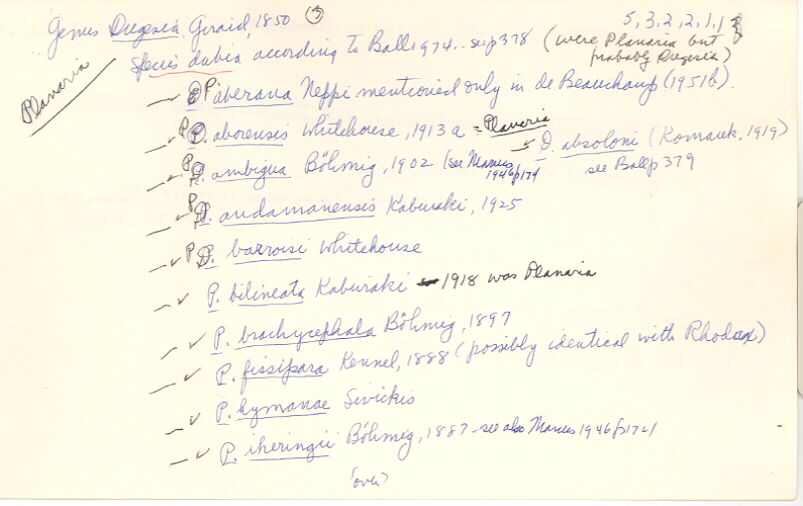 Genus Dugesia, Girard, 1850 (5) 5, 3, 2, 2, 1, 1
Species dubia according to Ball 1974 - see p 378 (were Planaria but probably Dugesia)
Planaria
P aberana Neppi mentioned only in de Beauchamp (1951b).
P. aborensis Whitehouse, 1913 a = Planaria
D. absoloni (Komarek, 1919)
see Ball p 379
P. ambigua Böhmig, 1902 (see Marcus 1946 p 174
P. andamanensis Kaburaki, 1925
P. barroisi Whitehouse
P. bilineata Kaburaki 1918 was Planaria
P. brachycephala Böhmig, 1897
P. fissipara Kennel, 1888 (possibly identical with Rhodax)
P. hymanae Sivickis
P. iheringii Böhmig, 1887 - see also Marcus 1946 p
(over)